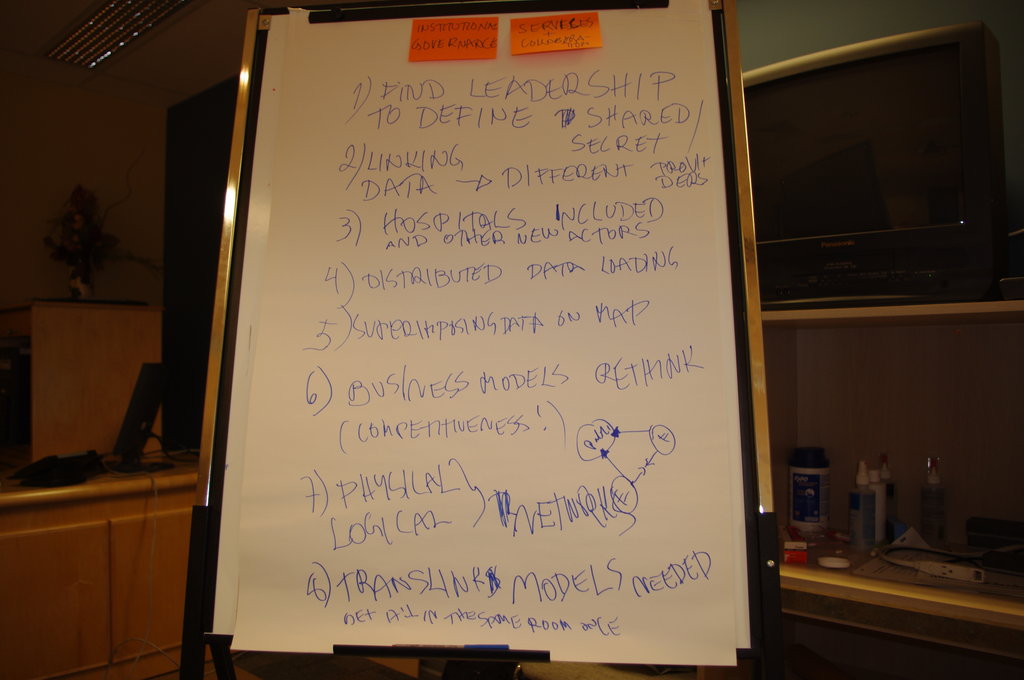 INSTITUTIONAL
GOVERNANCE
SERVICES
+
1) FIND LEADERSHIP
TO DEFINE SHARED/
SECRET
2) LINKING
DATA → DIFFERENT PROVI
DERS
3) HOSPITALS INCLUDED
AND OTHER NEW ACTORS
4) DISTRIBUTED DATA LOADING
5) SUPERIMPOSING DATA ON MAP
6) BUSINESS MODELS RETHINK
(COMPETITIVENESS!)
7) PHYSICAL
LOGICAL
NETWORKS
8) TRANSLINK MODELS NEEDED
GET ALL IN THE SAME ROOM ONCE
Panasonic